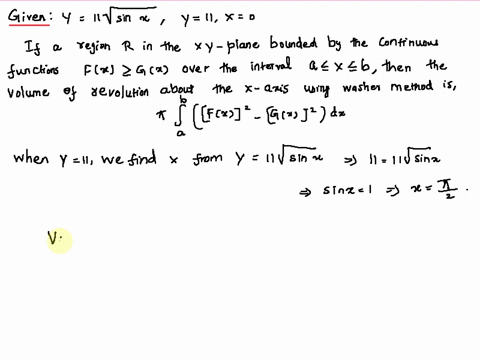 Given: y = 11√sin x , y = 11, x = 0
If a region R in the xy-plane bounded by the continuous
functions F(x) ≥ G(x) over the interval a ≤ x ≤ b, then the
volume of revolution about the x-axis using washer method is,
π ∫_a^b ([F(x)]² - [G(x)]²) dx
when y = 11, we find x from y = 11√sin x ⇒ 11 = 11√sin x
⇒ sin x = 1 ⇒ x = π/2 .
V: